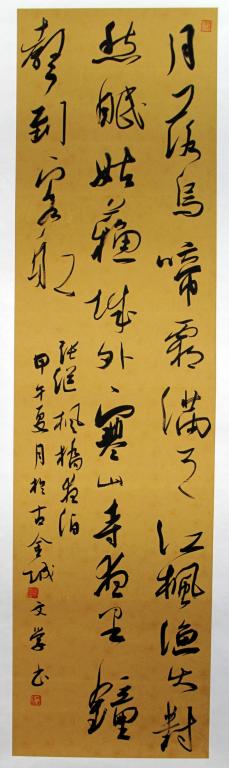 月落烏啼霜滿天江楓漁火對
愁眠姑蘇城外寒山寺夜半鐘
聲到客船
张继楓橋夜泊
甲午夏月於古金城文学书